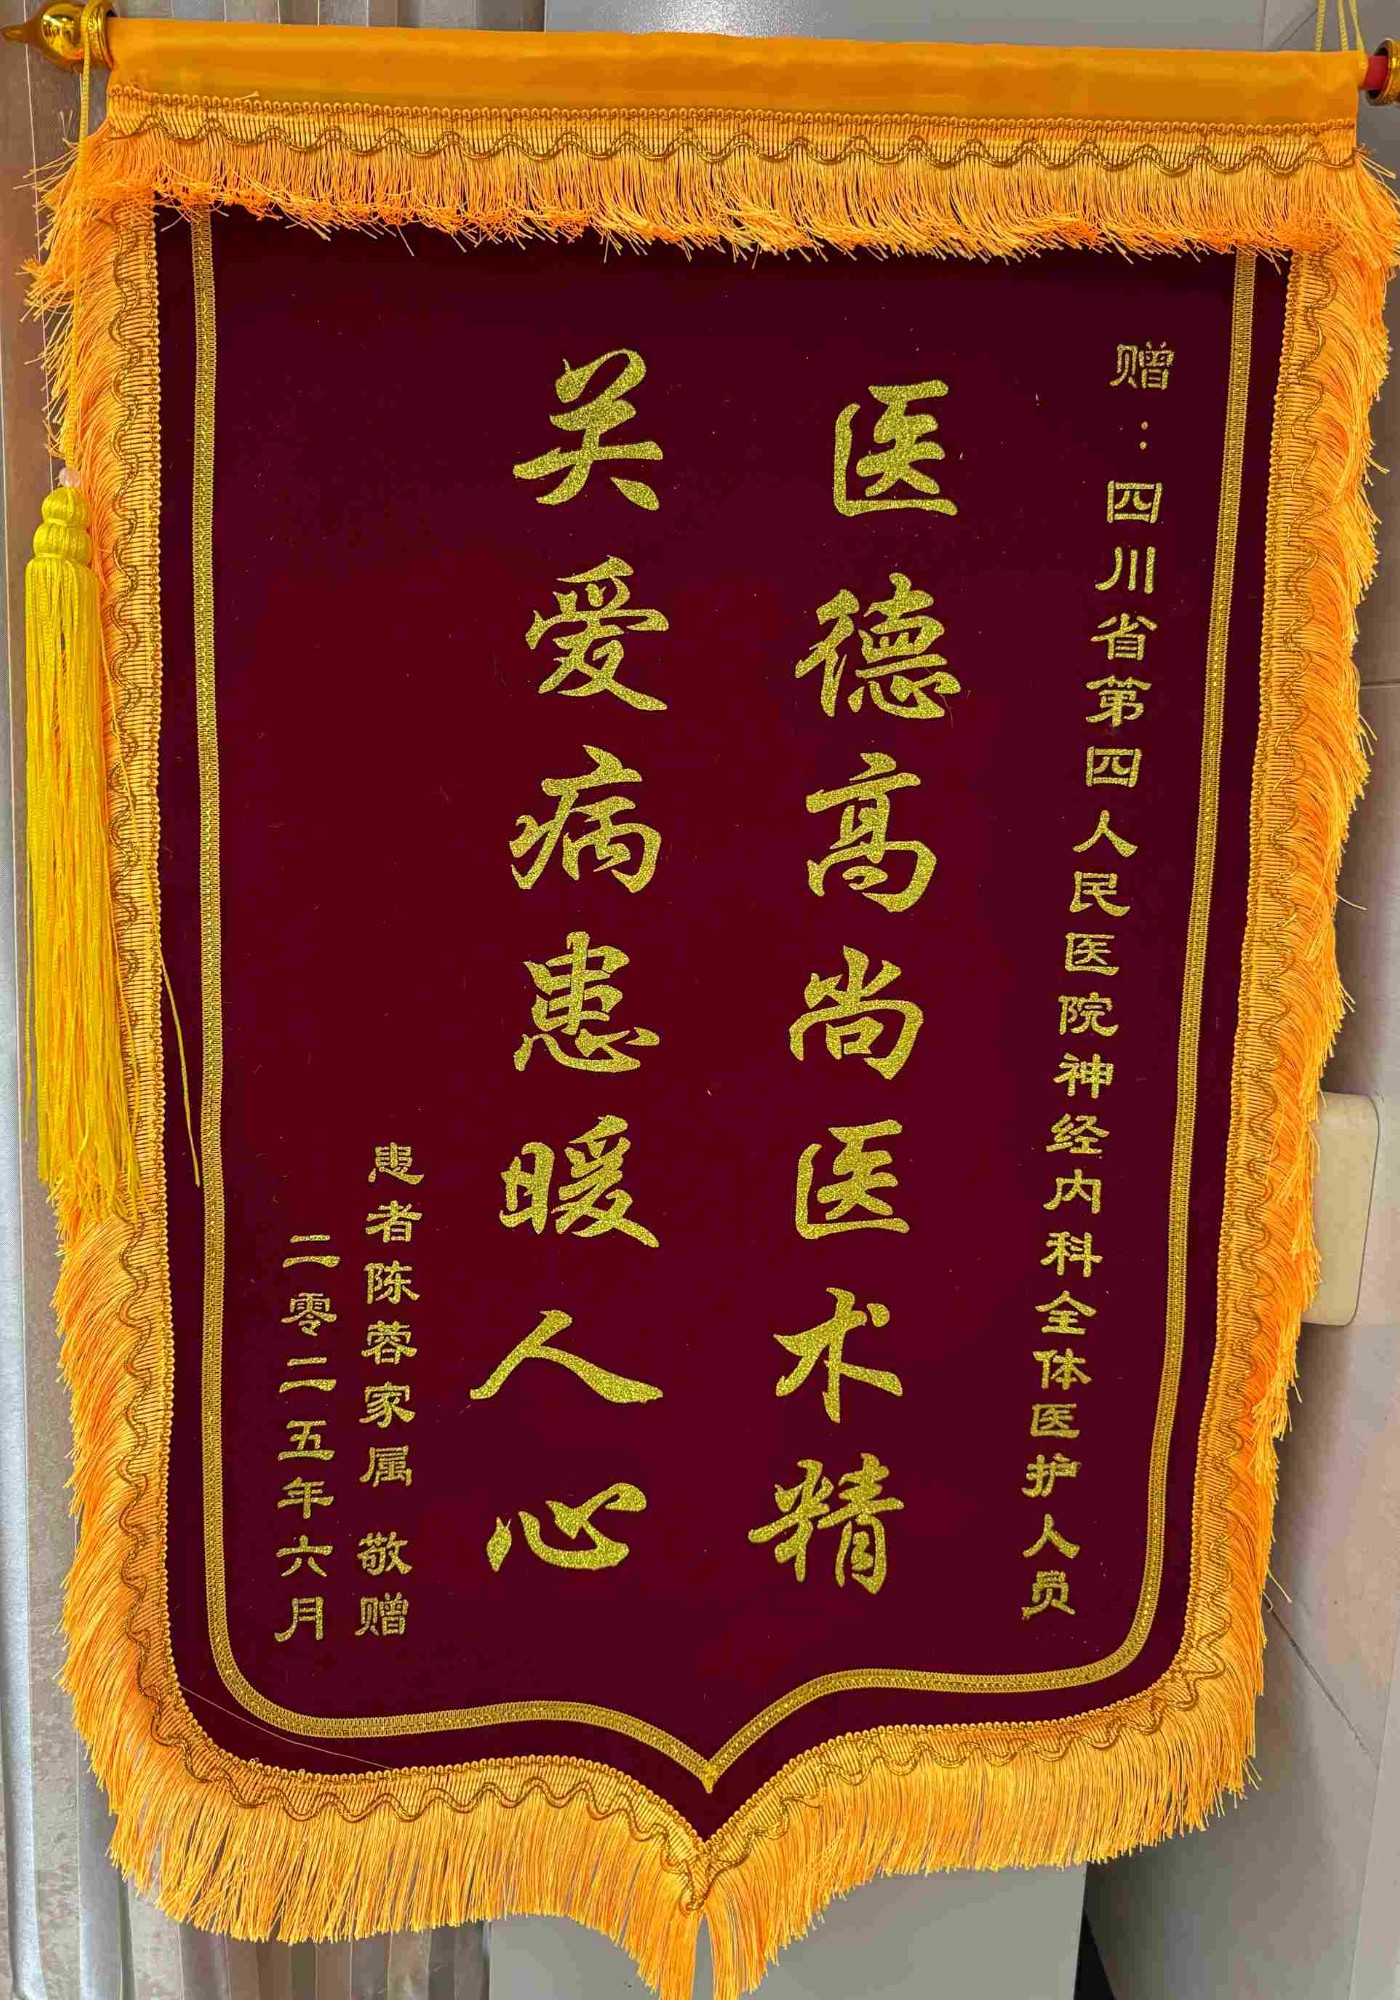 赠：四川省第四人民医院神经内科全体医护人员
医德高尚医术精
关爱病患暖人心
患者陈蓉家属 敬赠
二零二五年六月